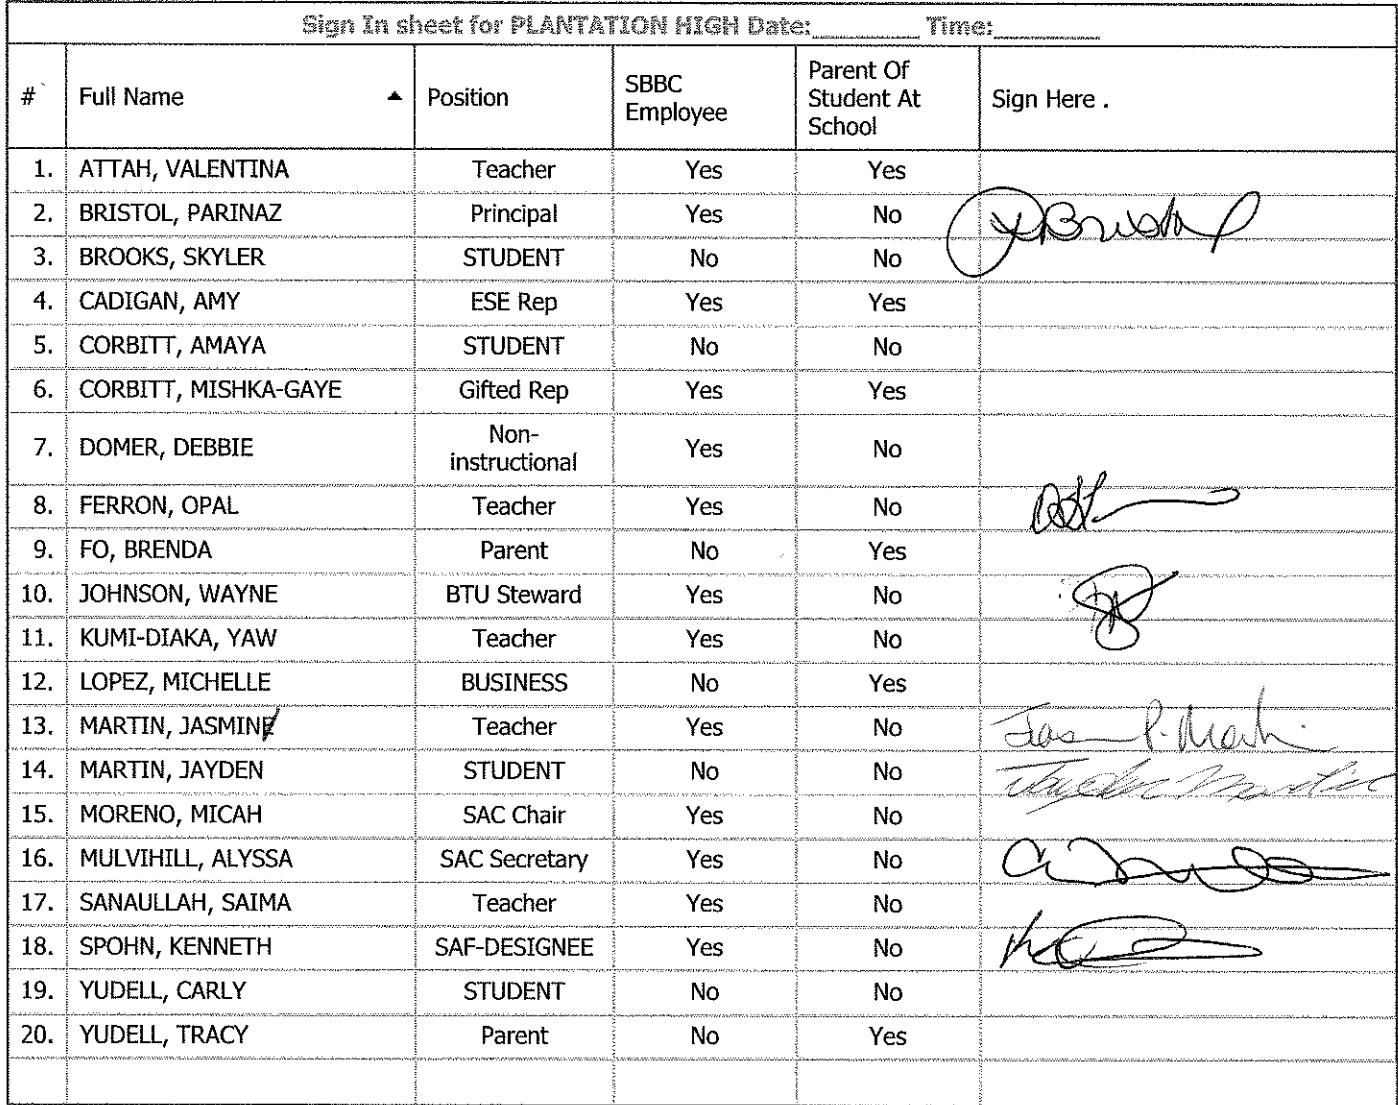 Sign In sheet for PLANTATION HIGH Date:________ Time:________
# Full Name ▲ Position SBBC Employee Parent Of Student At School Sign Here .
1. ATTAH, VALENTINA Teacher Yes Yes
2. BRISTOL, PARINAZ Principal Yes No
3. BROOKS, SKYLER STUDENT No No
4. CADIGAN, AMY ESE Rep Yes Yes
5. CORBITT, AMAYA STUDENT No No
6. CORBITT, MISHKA-GAYE Gifted Rep Yes Yes
7. DOMER, DEBBIE Non-instructional Yes No
8. FERRON, OPAL Teacher Yes No
9. FO, BRENDA Parent No Yes
10. JOHNSON, WAYNE BTU Steward Yes No
11. KUMI-DIAKA, YAW Teacher Yes No
12. LOPEZ, MICHELLE BUSINESS No Yes
13. MARTIN, JASMINE Teacher Yes No
14. MARTIN, JAYDEN STUDENT No No Jayden Martin
15. MORENO, MICAH SAC Chair Yes No
16. MULVIHILL, ALYSSA SAC Secretary Yes No
17. SANAULLAH, SAIMA Teacher Yes No
18. SPOHN, KENNETH SAF-DESIGNEE Yes No
19. YUDELL, CARLY STUDENT No No
20. YUDELL, TRACY Parent No Yes